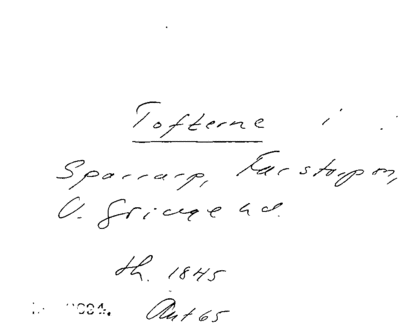 Tofterne i
Sparrarp, Farstorpsn,
V. Göinge hd.
th. 1845
Ant 65